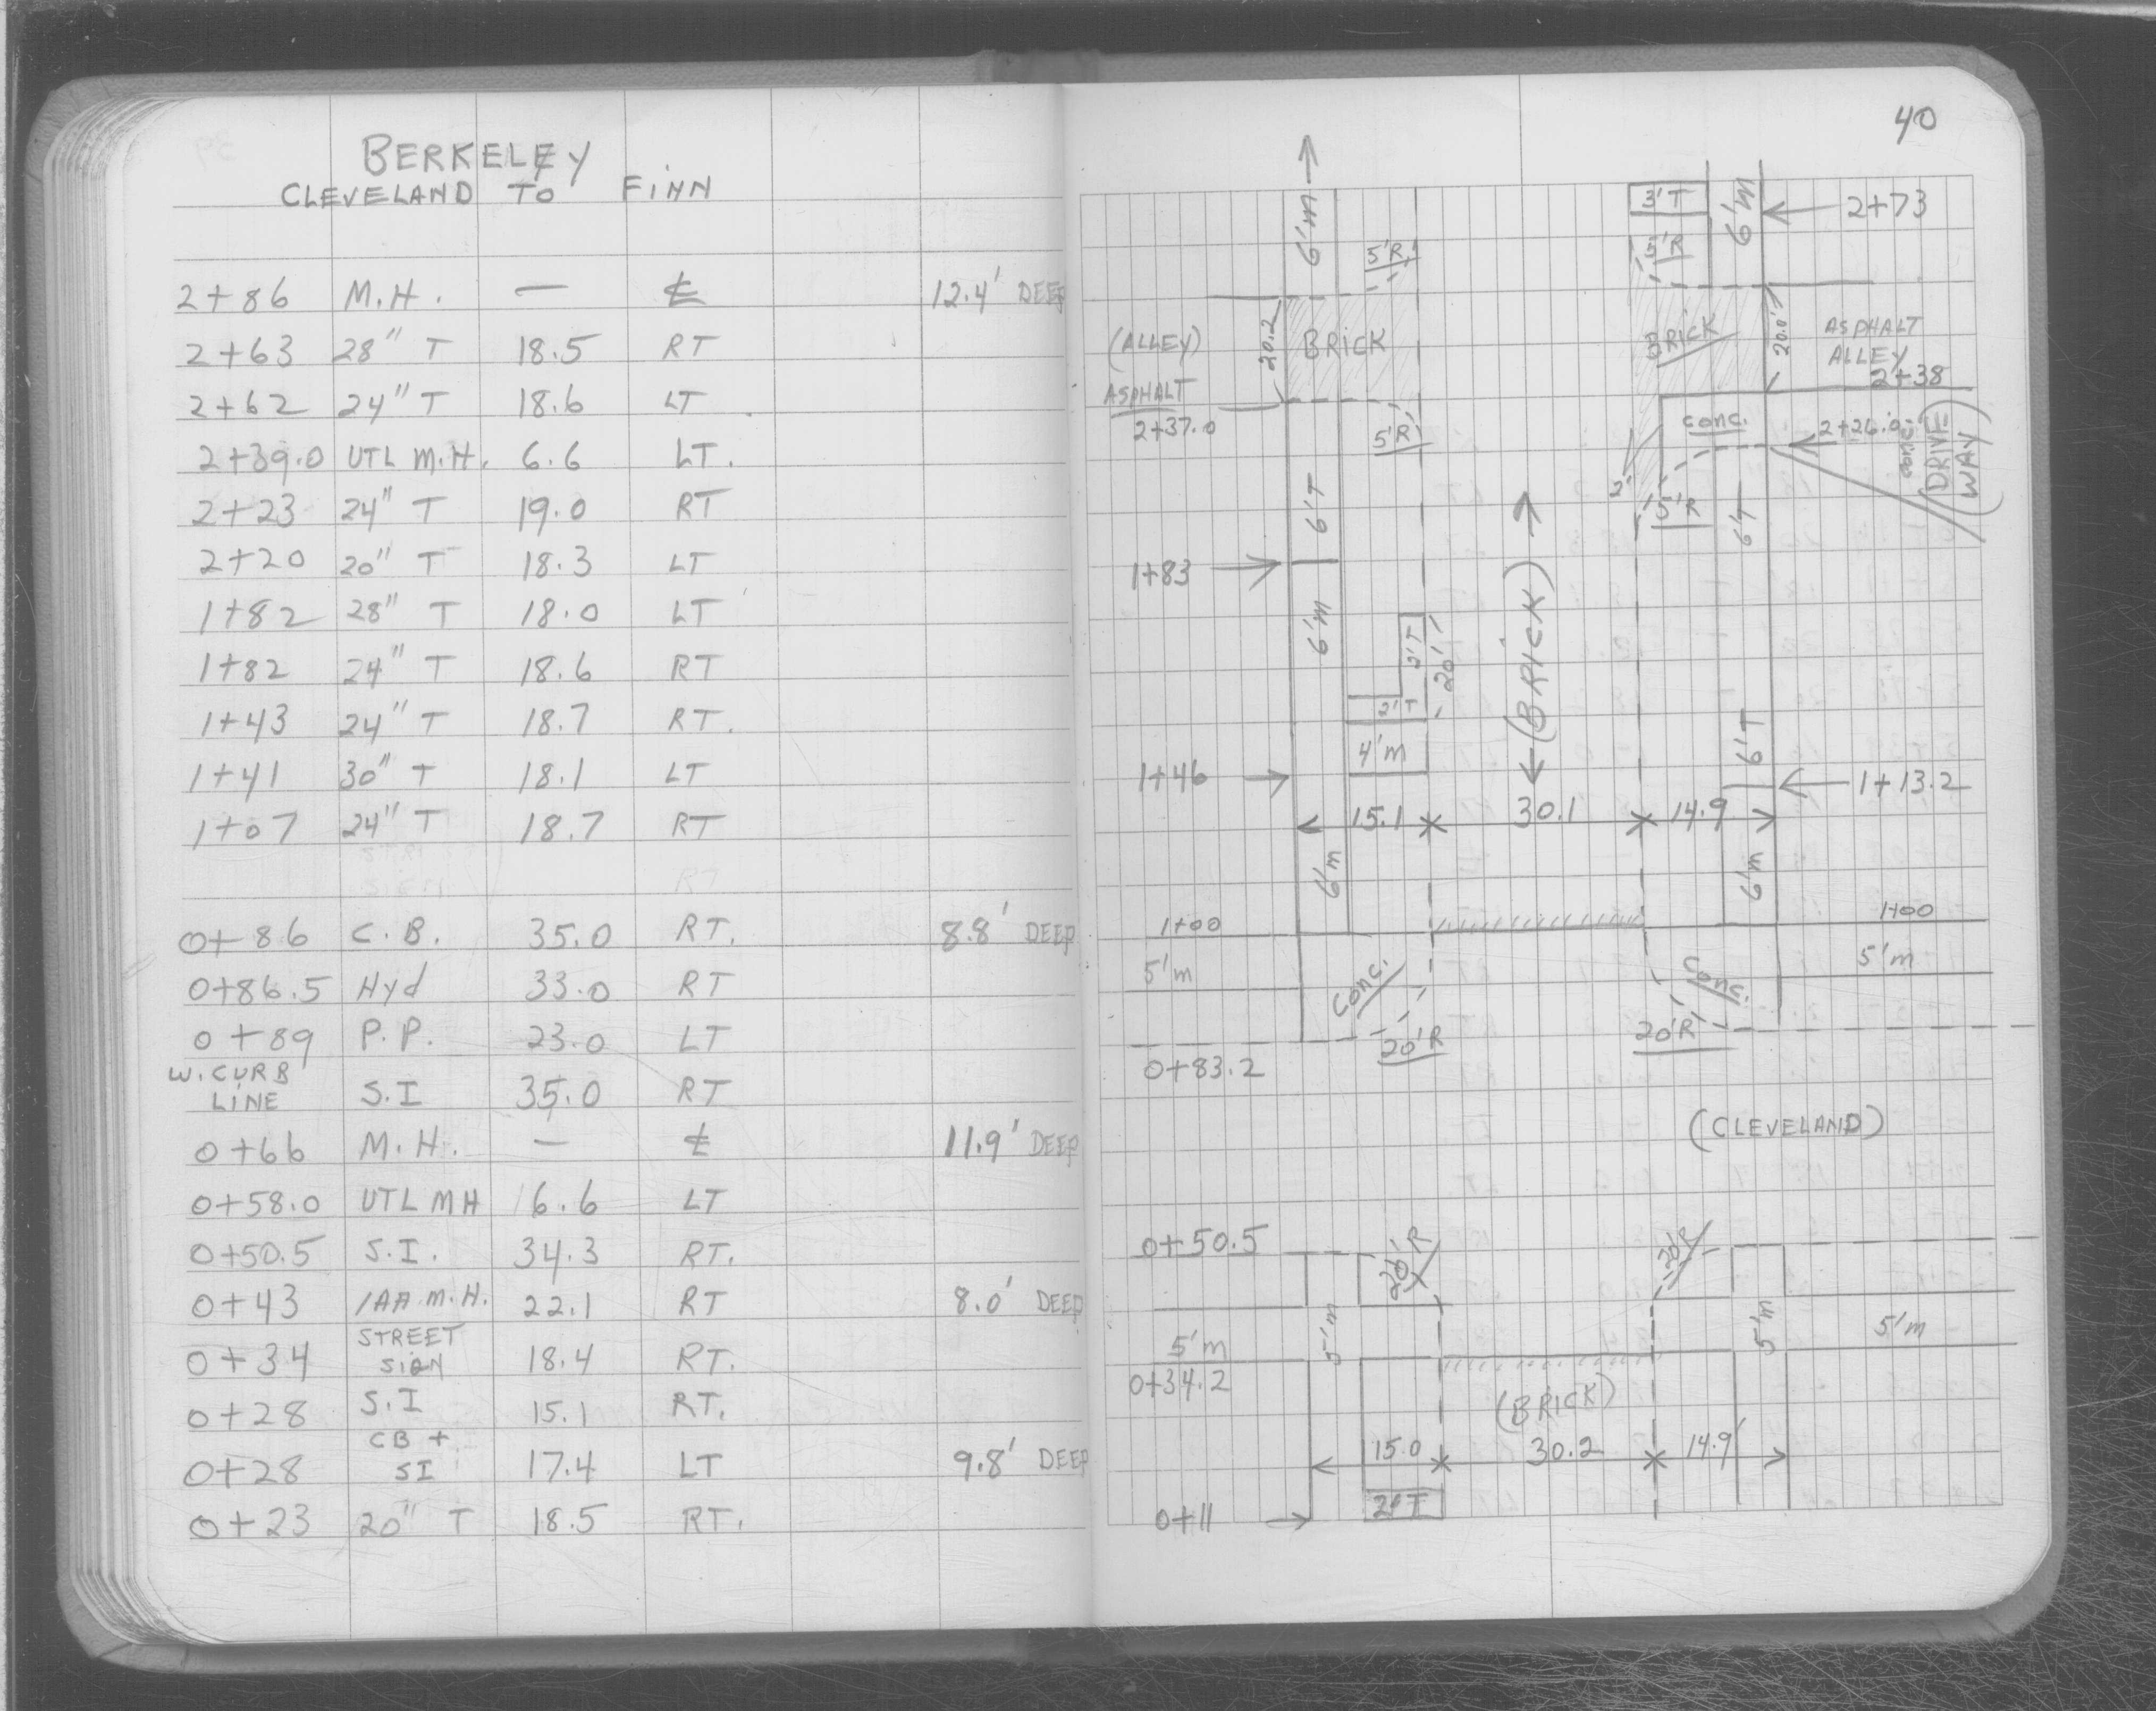 BERKELEY
CLEVELAND TO FINN
2+86 M.H. — ℄ 12.4' DEEP
2+63 28" T 18.5 RT
2+62 24" T 18.6 LT
2+39.0 UTL M.H. 6.6 LT.
2+23 24" T 19.0 RT
2+20 20" T 18.3 LT
1+82 28" T 18.0 LT
1+82 24" T 18.6 RT
1+43 24" T 18.7 RT.
1+41 30" T 18.1 LT
1+07 24" T 18.7 RT
0+86 C.B. 35.0 RT. 8.8' DEEP
0+86.5 Hyd 33.0 RT
0+89 P.P. 23.0 LT
W. CURB
LINE S.I 35.0 RT
0+66 M.H. — ℄ 11.9' DEEP
0+58.0 UTL MH 6.6 LT
0+50.5 S.I. 34.3 RT.
0+43 M.H. 22.1 RT 8.0' DEEP
0+34 STREET
SIGN 18.4 RT.
0+28 S.I 15.1 RT.
0+28 CB +
SI 17.4 LT 9.8' DEEP
0+23 20" T 18.5 RT.
40
6'm
5'R
3'T
5'R
6'm
2+73
(ALLEY)
ASPHALT
2+37.0
20.2
BRICK
BRICK
20.0'
ASPHALT
ALLEY
2+38
5'R
conc.
2+26.0
conc.
(DRIVE-
WAY)
2'
5'R
6'T
6'T
1+83
6'm
2'T
20'
2'T
4'm
(BRICK)
6'T
1+46
1+13.2
15.1 30.1 14.9
6'm
6'm
1+00
1+00
5'm
5'm
Conc.
Conc.
20'R
20'R
0+83.2
(CLEVELAND)
0+50.5
20'R
20'R
5'm
5'm
5'm
5'm
0+34.2
(BRICK)
15.0 30.2 14.9
2'T
0+11